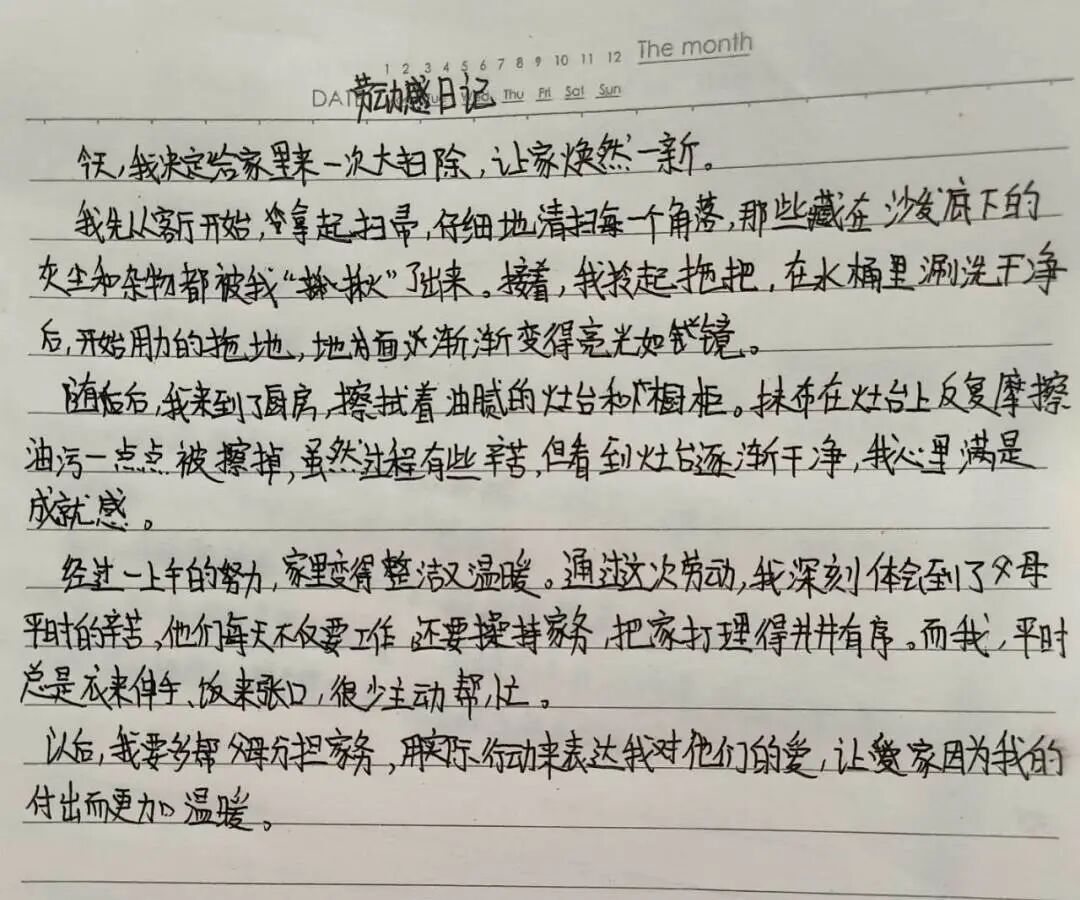 The month
1 2 3 4 5 6 7 8 9 10 11 12
DAT Wed Thu Fri Sat Sun
劳动感日记
今天,我决定给家里来一次大扫除,让家焕然一新。
我先从客厅开始,拿起扫帚,仔细地清扫每一个角落,那些藏在沙发底下的
灰尘和杂物都被我“揪”了出来。接着,我拎起拖把,在水桶里涮洗干净
后,开始用力的拖地,地面逐渐渐变得亮光如镜。
随后,我来到了厨房,擦拭着油腻的灶台和橱柜。抹布在灶台上反复摩擦
油污一点点被擦掉,虽然过程有些辛苦,但看到灶台逐渐干净,我心里满是
成就感。
经过一上午的努力,家里变得整洁又温暖。通过这次劳动,我深刻体会到了父母
平时的辛苦,他们每天不仅要工作 还要操持家务,把家打理得井井有序。而我,平时
总是衣来伸手、饭来张口,很少主动帮忙。
以后,我要多帮父母分担家务,用实际行动来表达我对他们的爱,让家因为我的
付出而更加温暖。